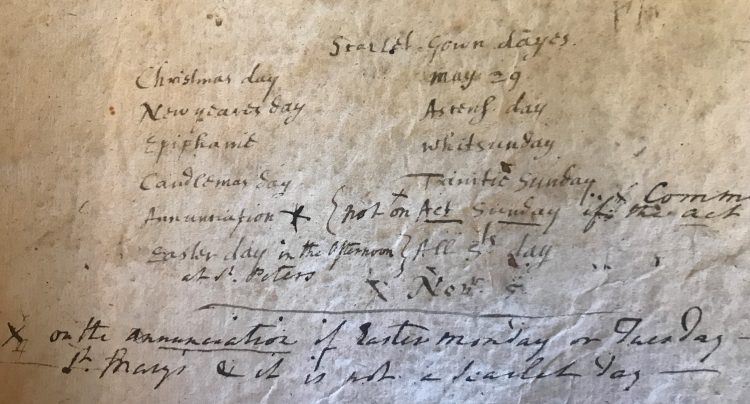 Scarlet Gown dayes.
Christmas day
New yeares day
Epiphanie
Candlemas day
Annunciation x
Easter day in the Afternoon
at St. Peters
may 29
Ascens. day
whitsunday
Trinitie Sunday
{not on Act Sunday if the act
Comm
} All Sts day
x Nov. 5.
x on the annunciation if Easter monday or Tuesday —
St. Marys & it is not a Scarlet Day —